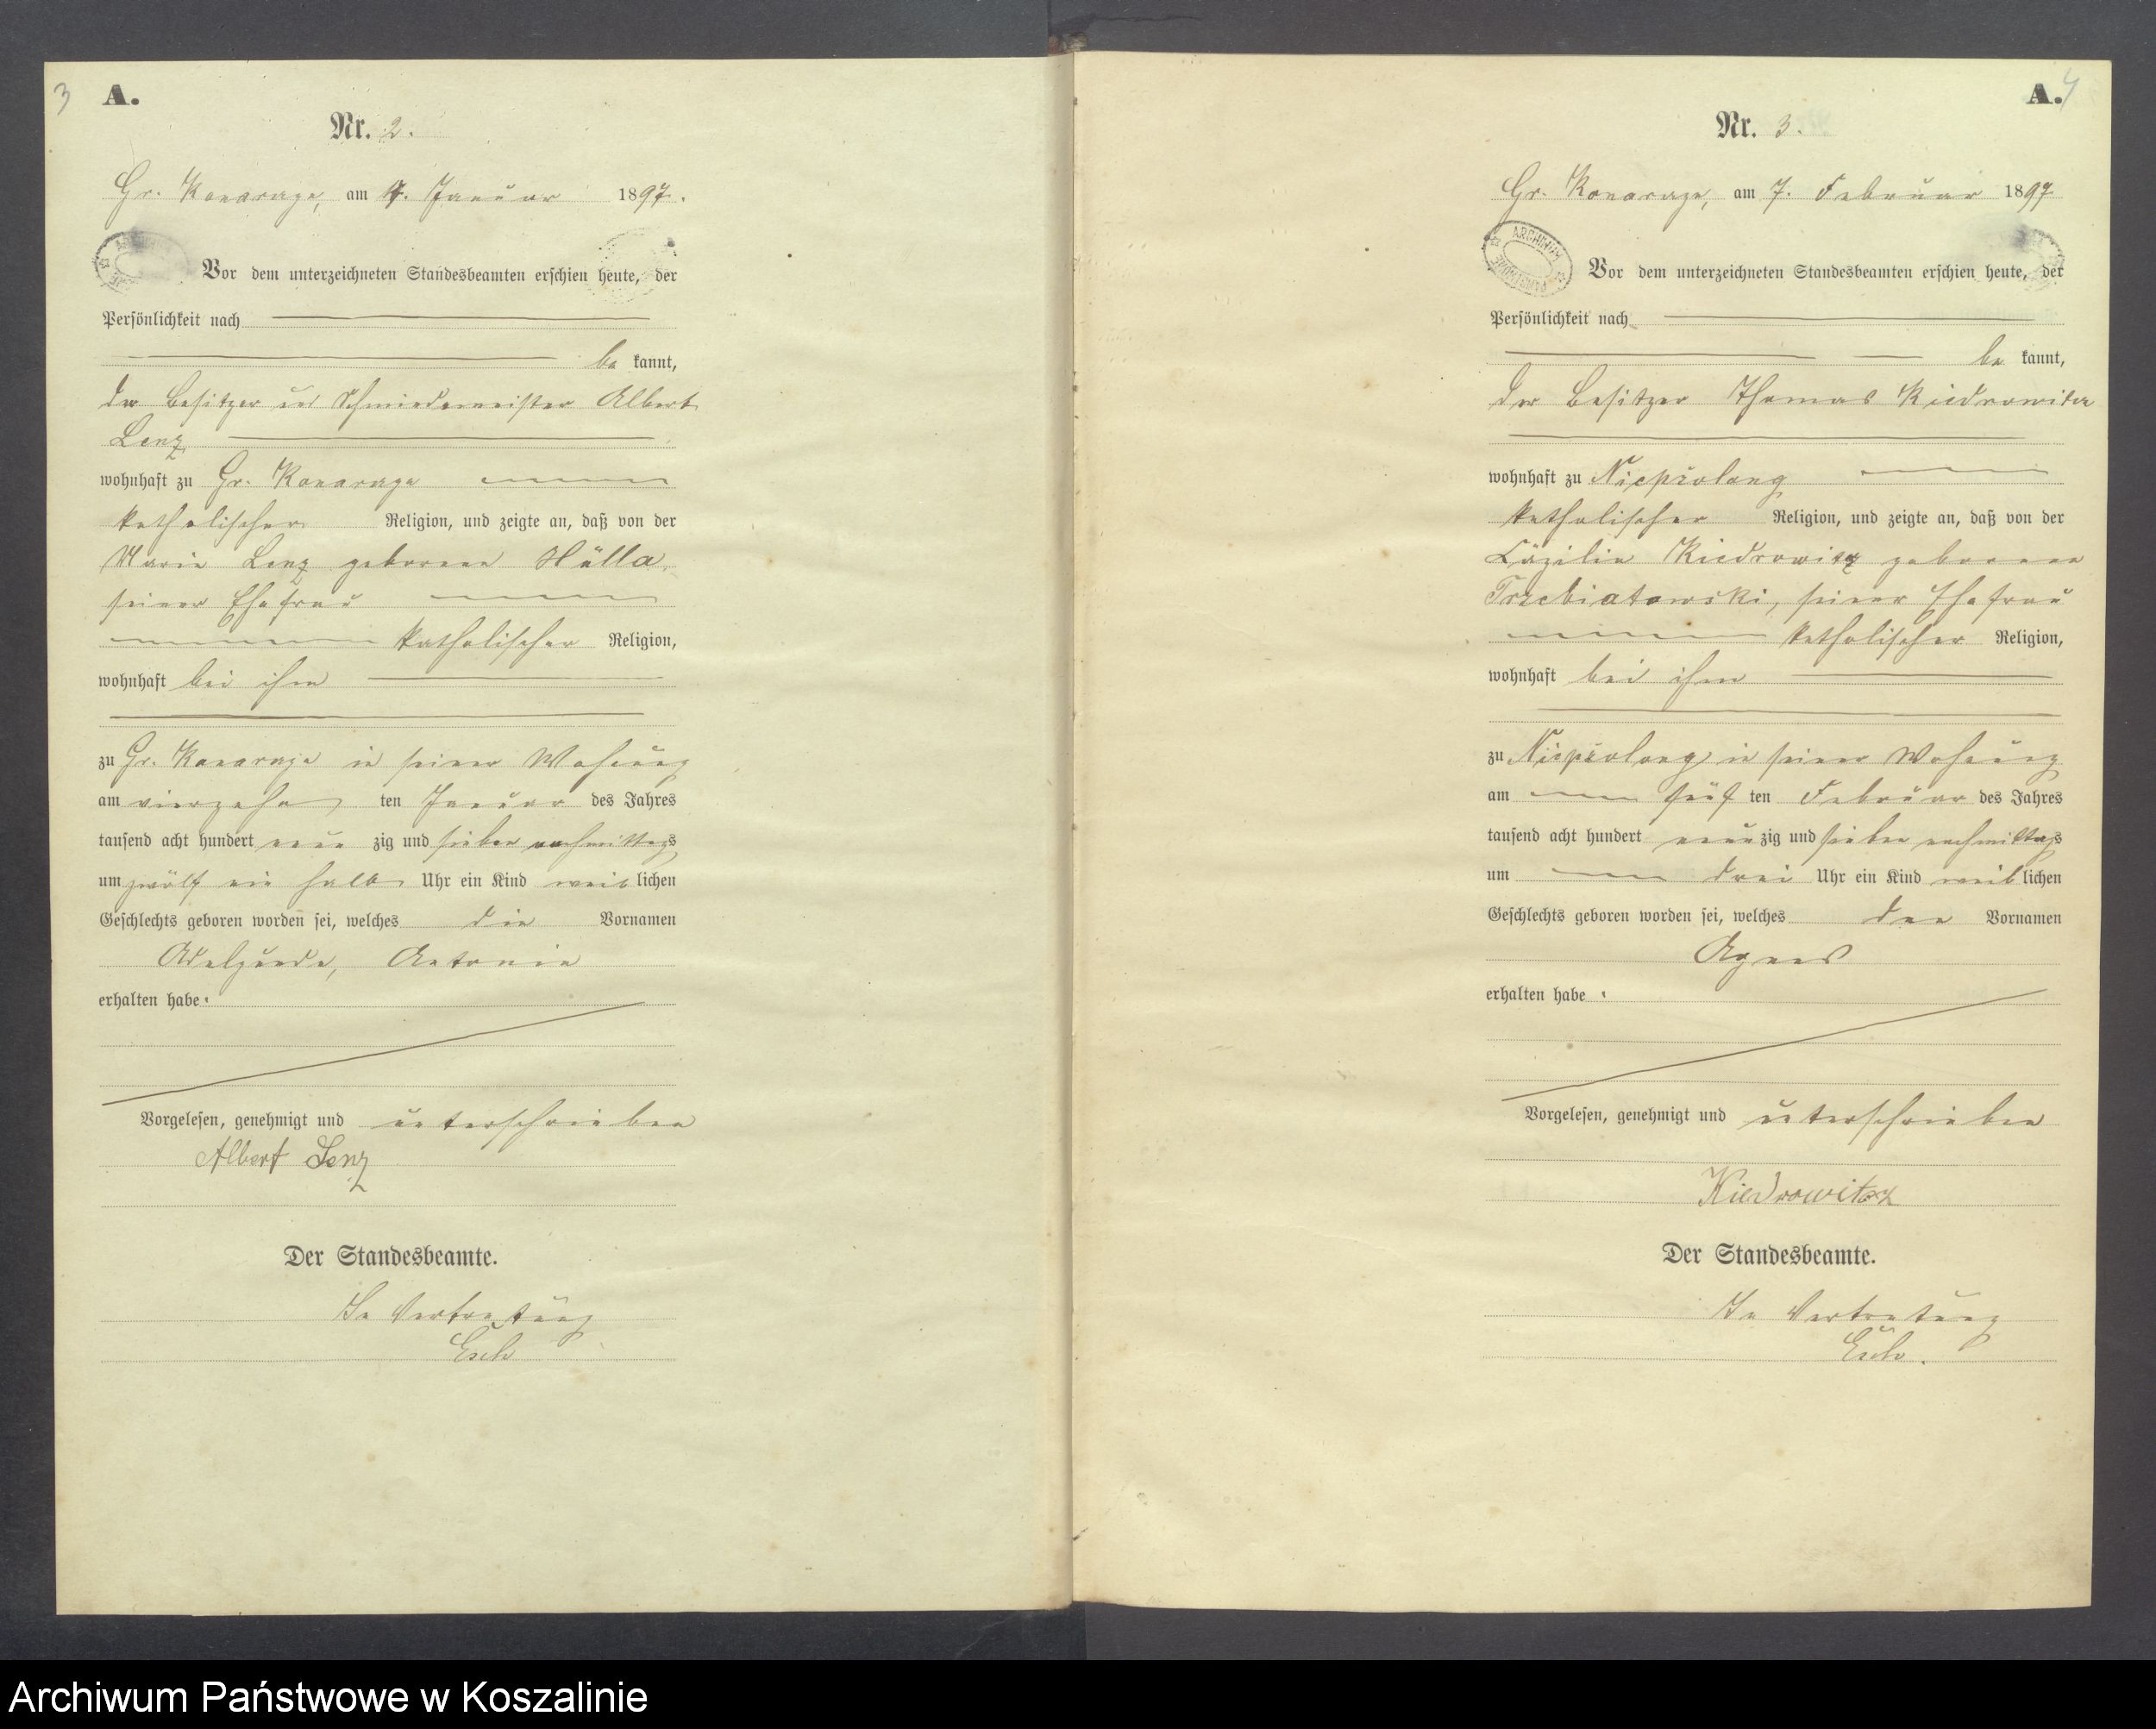 3
A.
Nr. 2.
Gr. Konarzyn, am 7. Januar 1897.
Vor dem unterzeichneten Standesbeamten erschien heute, der
Persönlichkeit nach
be kannt,
der Besitzer und Schmiedemeister Albert
Lenz
wohnhaft zu Gr. Konarzyn
katholischer Religion, und zeigte an, daß von der
Marie Lenz geborenen Hälla,
seiner Ehefrau
katholischer Religion,
wohnhaft bei ihm
zu Gr. Konarzyn in seiner Wohnung
am vierzehn ten Januar des Jahres
tausend acht hundert neun zig und sieben nachmittags
um zwölf ein halb Uhr ein Kind weib lichen
Geschlechts geboren worden sei, welches die Vornamen
Adelgunde, Antonie
erhalten habe.
Vorgelesen, genehmigt und unterschrieben
Albert Lenz
Der Standesbeamte.
In Vertretung
A. 4
Nr. 3.
Gr. Konarzyn, am 7. Februar 1897
ARCHIWUM
Vor dem unterzeichneten Standesbeamten erschien heute, der
Persönlichkeit nach
be kannt,
der Besitzer Thomas Kiedrowicz
wohnhaft zu
katholischer Religion, und zeigte an, daß von der
Cäzilie Kiedrowicz geborenen
Trzebiatowski, seiner Ehefrau
katholischer Religion,
wohnhaft bei ihm
zu in seiner Wohnung
am fünf ten Februar des Jahres
tausend acht hundert neun zig und sieben nachmittags
um drei Uhr ein Kind weib lichen
Geschlechts geboren worden sei, welches den Vornamen
Agnes
erhalten habe.
Vorgelesen, genehmigt und unterschrieben
Der Standesbeamte.
In Vertretung
Archiwum Państwowe w Koszalinie